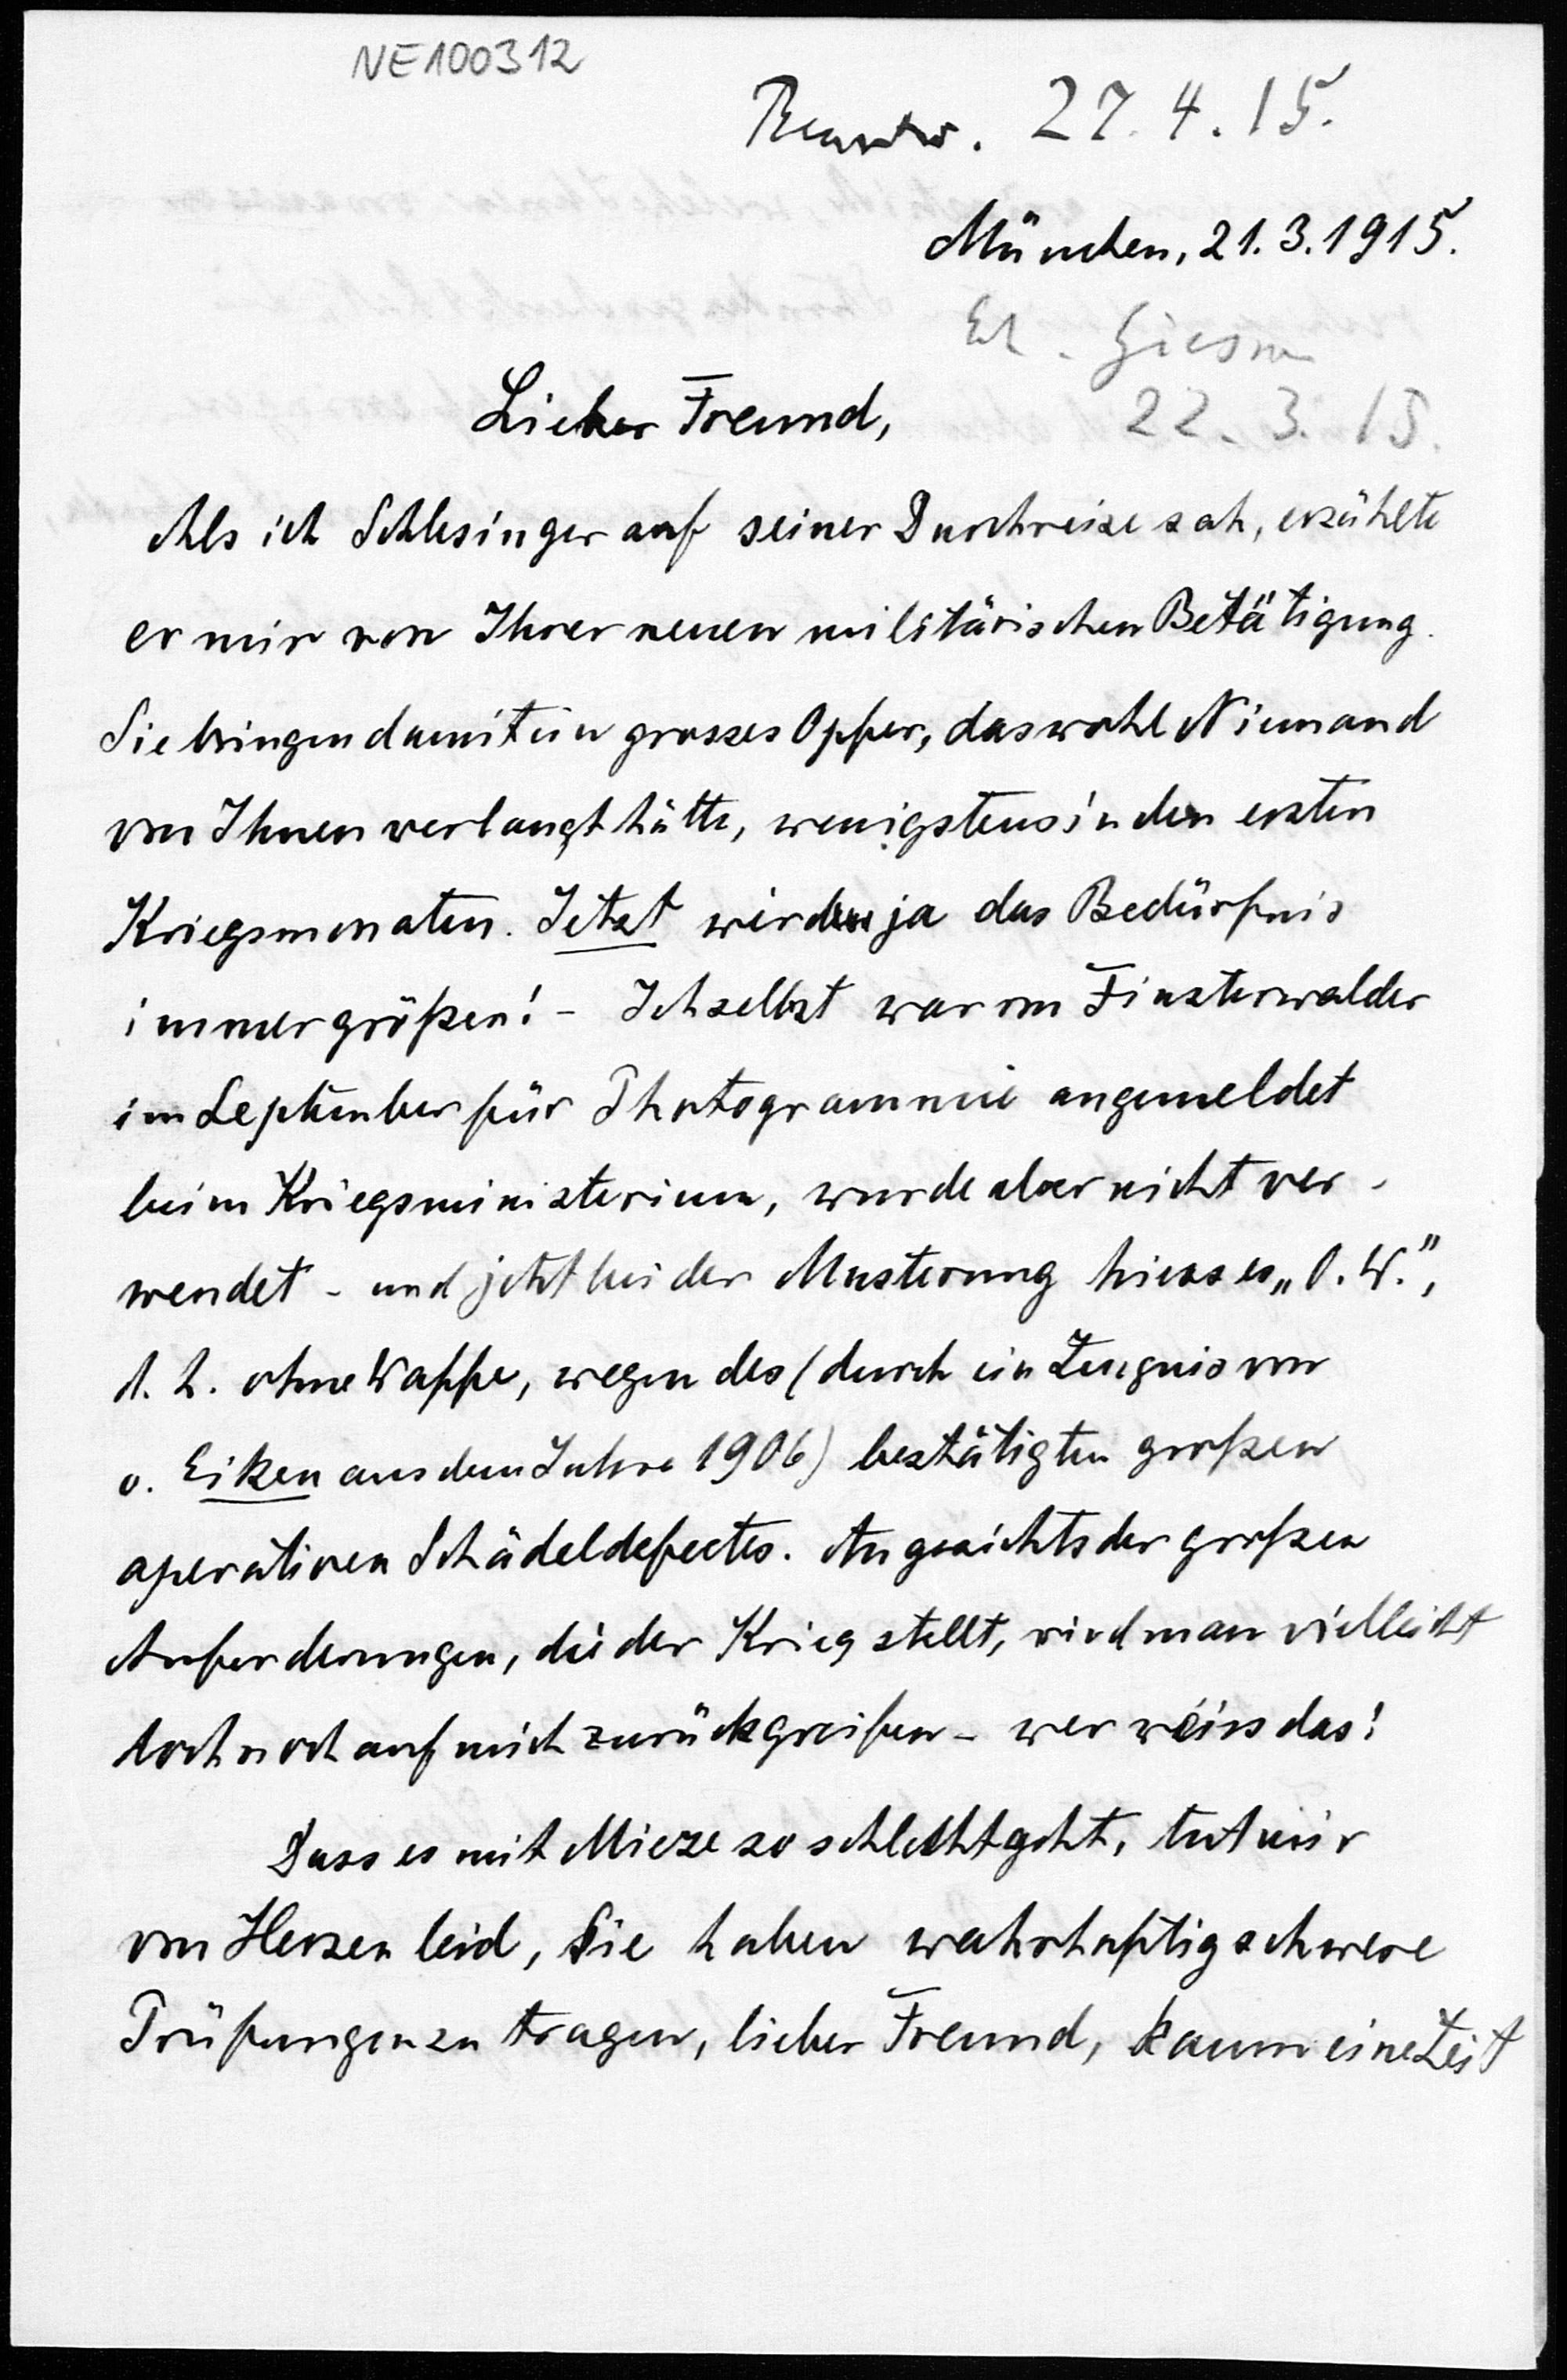 NE100312
Beantw. 27.4.15.
München, 21.3.1915.
Erh. Giessen
22.3.15.
Lieber Freund,
Als ich Schlesinger auf seiner Durchreise sah, erzählte
er mir von Ihrer neuen militärischen Betätigung.
Sie bringen damit ein grosses Opfer, das wohl Niemand
von Ihnen verlangt hätte, wenigstens in den ersten
Kriegsmonaten. Jetzt wird ja das Bedürfnis
immer größer! - Ich selbst war von Finsterwalder
im September für Photogrammie angemeldet
beim Kriegsministerium, wurde aber nicht ver-
wendet - und jetzt bei der Musterung hiess es „O.W.",
d.h. ohne Waffe, wegen des (durch ein Zeugnis von
v. Eiken aus dem Jahre 1906) bestätigten großen
operativen Schädeldefectes. Angesichts der großen
Anforderungen, die der Krieg stellt, wird man vielleicht
doch noch auf mich zurückgreifen - wer weiss das!
Dass es mit Mieze so schlecht geht, tut mir
von Herzen leid, Sie haben wahrhaftig schwere
Prüfungen zu tragen, lieber Freund, kaum eine Zeit